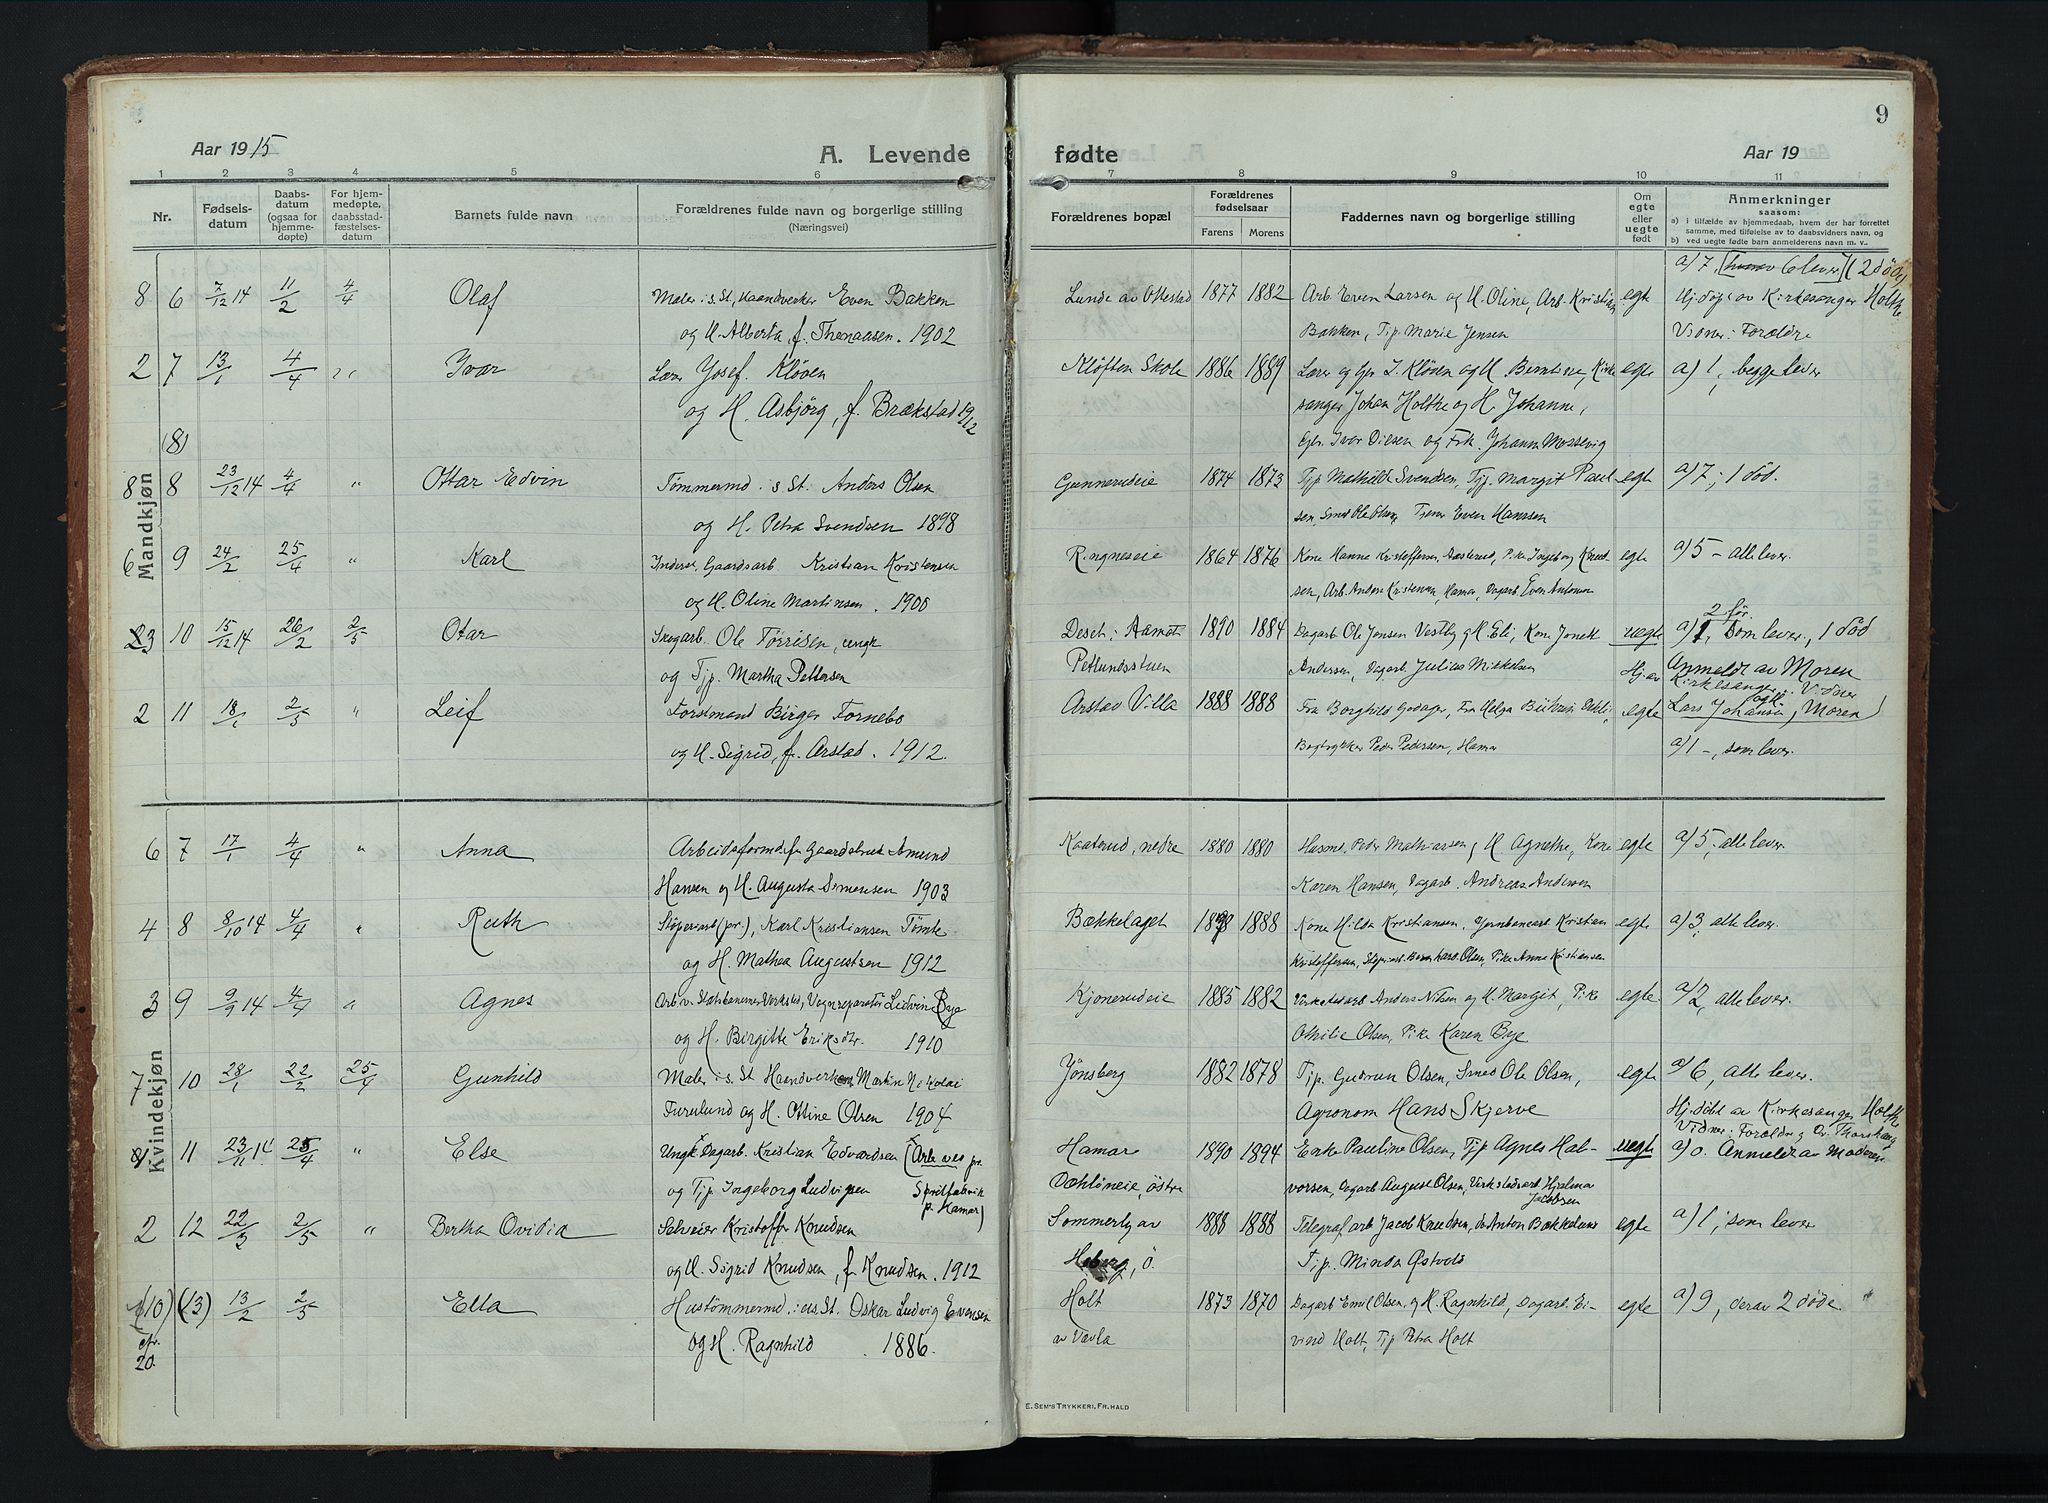 9
Aar 1915
A. Levende
fødte
Aar 19
1 2 3 4 5 6 7 8 9 10 11
Nr.
Fødsels-
datum
Daabs-
datum
(ogsaa for
hjemme-
døpte)
For hjem-
medøpte,
daabsstad-
fæstelses-
datum
Barnets fulde navn
Forældrenes fulde navn og borgerlige stilling
(Næringsvei)
Forældrenes bopæl
Forældrenes
fødselsaar
Farens Morens
Faddernes navn og borgerlige stilling
Om
egte
eller
uegte
født
Anmerkninger
saasom:
a) i tilfælde av hjemmedaab, hvem der har forrettet
samme, med tilføielse av to daabsvidners navn, og
b) ved uegte fødte barn anmelderens navn m. v..
Mandkjøn
a) 7, 6 lever (2 døde)
8 6 7/12 14 11/2 4/4 Olaf Maler i s. St, Haandverker Even Bakken Lunde av Ottestad 1877 1882 Arb. Even Larsen og H. Oline, Arb. Kristian egte Hj. døpt av Kirkesanger Holthe
og H. Alberta, f. Thomassen. 1902 Bakken, Tjp Marie Jensen Vidner: Forældre
2 7 13/1 4/4 " Ivar Lærer Josef Kløven Kløften Skole 1886 1889 Lærer og Gbr. I. Kløven og H. Berntine, Kirke egte a) 1, begge lever
og H. Asbjörg, f. Brækstad 1912 sanger Johan Holthe og H. Johanne,
(8) Gbr. Ivar Diesen og Frk. Johanna Mossevig
8 8 23/12 14 4/4 " Ottar Edvin Tømmermd i s St. Anders Olsen Gunnerudeie 1874 1873 Tjp Mathilde Svendsen, Tjp. Margit Paul- egte a) 7; 1 død.
og H. Petra Svendsen 1898 sen, Smed Ole Olsen, Even Hanssen
6 9 24/2 25/4 " Karl Inderst, Gaardsarb Kristian Kristensen Ringneseie 1864 1876 Kone Hanne Kristoffersen, Aasterud, Pike Ingeborg Knud- egte a) 5 - alle lever.
og H. Oline Martinsen. 1900 sen, Arb. Anders Kristensen, Hamar, Dagarb. Even Antonsen
23 10 15/12 14 26/2 2/5 Otar Skogarb. Ole Törrisen, ungk Deset i Aamot 1890 1884 Dagarb Ole Jensen Vestby og H. Eli, Kone Jonette uegte a) 2 før som lever, 1 død
og Tjp. Martha Pettersen Petlundsstuen Andersen, Dagarb. Julius Mikkelsen Hj. av Anmeldt av Moren
Kirkesanger Vidner
2 11 18/1 2/5 " Leif Forstmand Birger Fornebo Arstad Villa 1888 1888 Fru Borghild Godager, Fru Helga egte Lars Johansen, og Moren)
og H. Sigrid, f. Arstad. 1912. Bogtrykker Peder Pedersen, Hamar a) 1 -, som lever.
Kvindekjøn
6 7 17/1 4/4 " Anna Arbeidsformd. for Gaardsbruk Amund Kaaterud, nedre 1880 1880 Husmd. Peder Mathiassen og H Agnethe, Kone egte a) 5, alle lever.
Hansen og H. Augusta Simensen 1903 Karen Hansen, Dagarb. Andreas Andersen
4 8 8/10 14 4/4 " Ruth Støperiarb (pr.), Karl Kristiansen Tømte Bækkelaget 1888 Kone Hilda Kristiansen, Jernbanearb Kristian egte a) 3, alle lever.
og H. Mathea Augustsen 1912 Kristoffersen, Støperiarb. Bernhard Olsen, Pike Anne Kristiansen
3 9 9/9 14 4/4 " Agnes Arb v. Statsbanernes Verksted, Vognreparatør Ludvin Bye Kjonerudeie 1885 1882 Verkstedarb Anders Nilsen og H. Margit, Pike egte a) 2, alle lever.
og H. Birgitte Eriksdtr. 1910 Othilie Olsen, Pike Karen Bye
7 10 28/1 22/2 25/4 Gunhild Maler i s. St Haandverker Martin Nikolai Jønsberg 1882 1878 Tjp. Gudrun Olsen, Smed Ole Olsen, egte a) 6, alle lever.
Furulund og H. Ottine Olsen 1904 Agronom Hans Skjerve Hj. døbt av Kirkesanger Holthe
Vidner: Forældre og
11 23/11 14 25/4 " Else Ungk Dagarb. Kristian Edvardsen (Arb. ved pr. Hamar 1890 1894 Enke Pauline Olsen, Tjp Agnes Hal- uegte a) 0. Anmeldt av Moderen
og Tjp Ingeborg Ludvigsen Spritfabrik Dæhlöneie, østre vorsen, Dagarb August Olsen, Verkstedarb Hjalmar
p. Hamar) Jacobsen
2 12 22/3 2/5 " Bertha Ovidia Selveier Kristoffer Knudsen Sommerly av 1888 1888 Telegrafarb Jacob Knudsen, Anton Bækkelund egte a) 1; som lever
og H. Sigrid Knudsen, f. Knudsen. 1912 Hoberg, ö. Tjp. Minda Østvold
(10) (13) 13/2 2/5 Ella Hustömmermd. i s St. Oskar Ludvig Evensen Holt 1873 1870 Dagarb Emil Olsen, og H. Ragnhild, Dagarb. Ei- egte a) 9, derav 2 døde. "
cfr. og H. Ragnhild 1886. av Vævla vind Holt, Tjp Petra Holt
20.
E. SEM'S TRYKKERI, FR.HALD